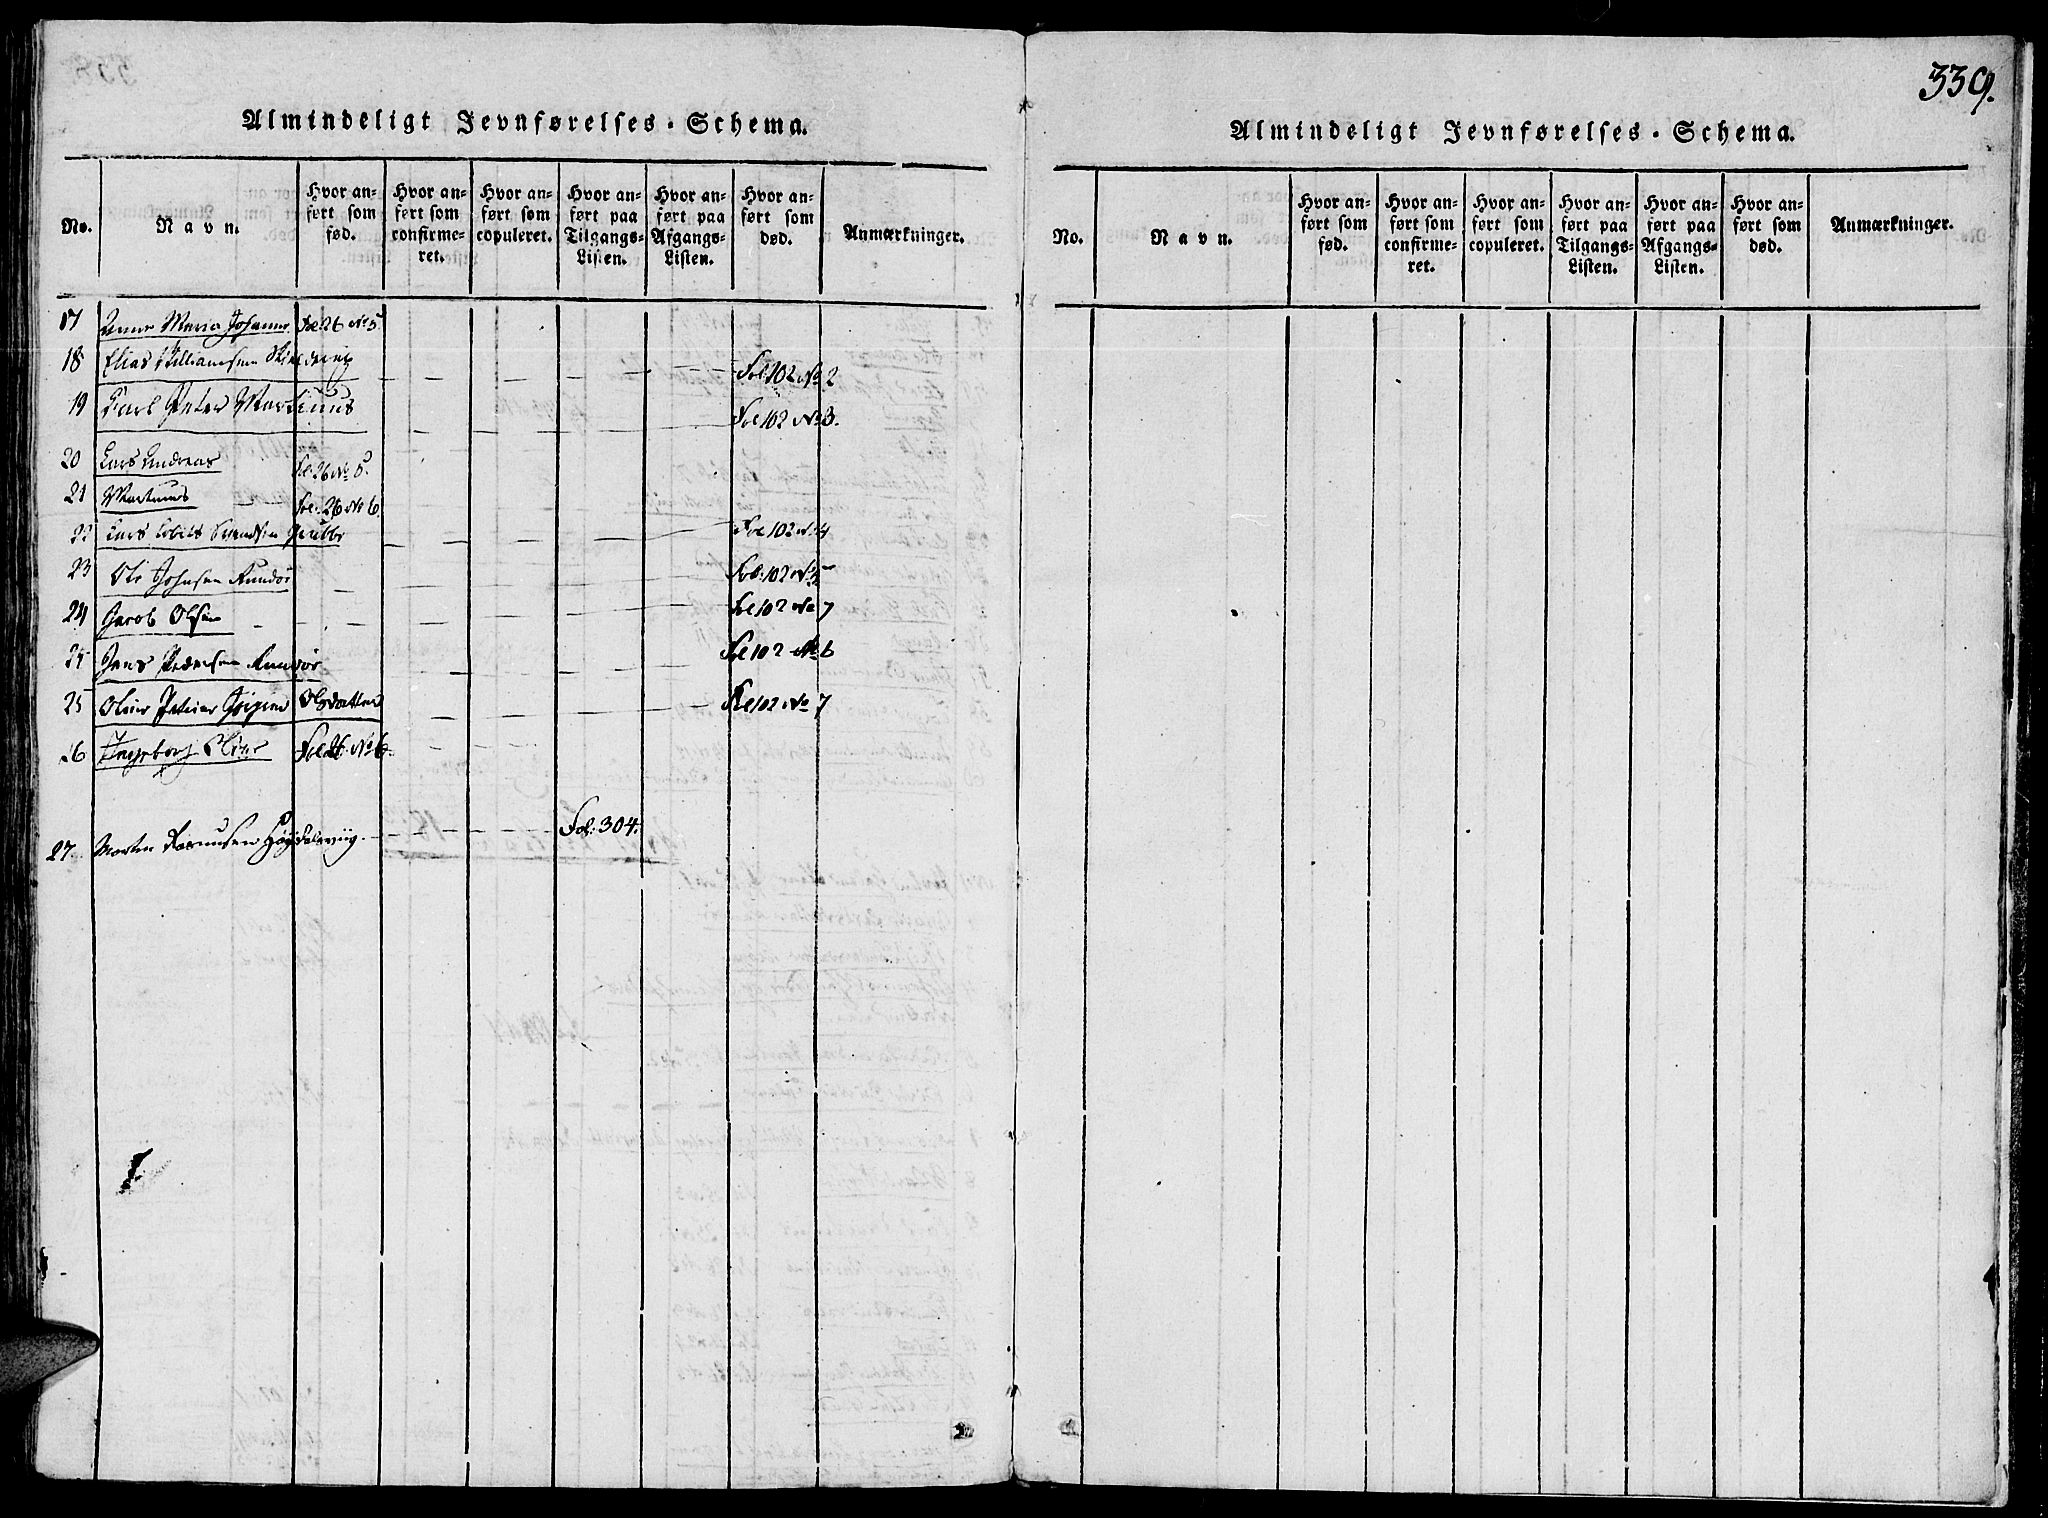 Almindeligt Jevnførelses-Schema.
No. Navn. Hvor anført som fød. Hvor anført som confirmeret. Hvor anført som copuleret. Hvor anført paa Tilgangs-Listen. Hvor anført paa Afgangs-Listen. Hvor anført som død. Anmærkninger.
17 Anne Maria Johanne Fol: 26 No 5.
18 Elias Williamsen Fol: 102 No 2
19 Karl Peter Martinus Fol 102 No 3.
20 Lars Andreas Fol: 26 No 5.
21 Martinus Fol: 26 No 6.
22 Lars Svendsen Grubbe Fol 102 No 4
23 Ole Johnsen Rundøe Fol: 102 No 5
24 Jacob Olsen Fol 102 No 7
25 Jens Pedersen Fol 102 No 6
25 Oline Petrine Olsdatter Fol 102 No 7
26 Ingeborg Oline Fol 26. No 6.
27. Morten Rasmussen Fol: 304.
339.
Almindeligt Jevnførelses-Schema.
No. Navn. Hvor anført som fød. Hvor anført som confirmeret. Hvor anført som copuleret. Hvor anført paa Tilgangs-Listen. Hvor anført paa Afgangs-Listen. Hvor anført som død. Anmærkninger.